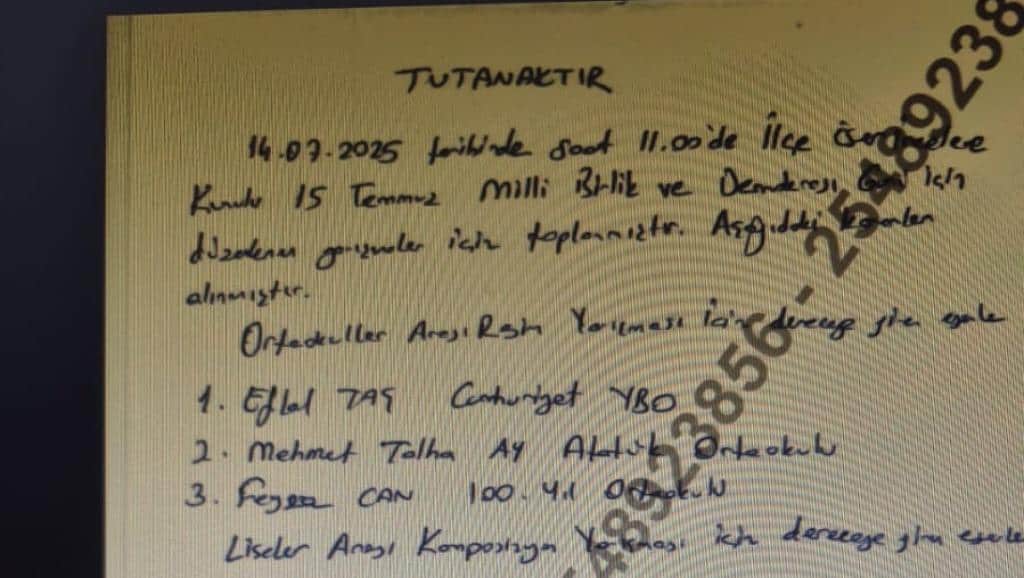 TUTANAKTIR
14.07.2025 tarihinde saat 11.00'de İlçe
Kurulu 15 Temmuz Milli Birlik ve Demokrasi Günü için
düzenlenen için toplanmıştır. Aşağıdaki
alınmıştır.
Ortaokullar Arası Resim Yarışması için dereceye giren
1. Eflal TAŞ Cumhuriyet YBO
2. Mehmet Talha AY Atatürk Ortaokulu
3. CAN 100. Yıl Ortaokulu
Liseler Arası Kompozisyon Yarışması için dereceye giren